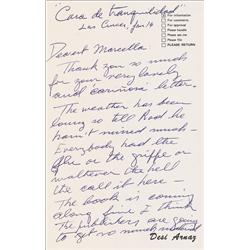 "Casa de tranquilidad"
Las Cruces, Jan 14
For information
For comments
For approval
Please handle
Please see me
Please file
PLEASE RETURN
Dearest Marcella
Thank you so much
for your very lovely
and "cariñosa" letter.
The weather has been
lousy so tell Rod he
hasn't missed much -
Everybody had the
flu or the grippe or
whatever the hell
they call it here -
The book is coming
along fine I think
The publishers are going
to get so much material
Desi Arnaz